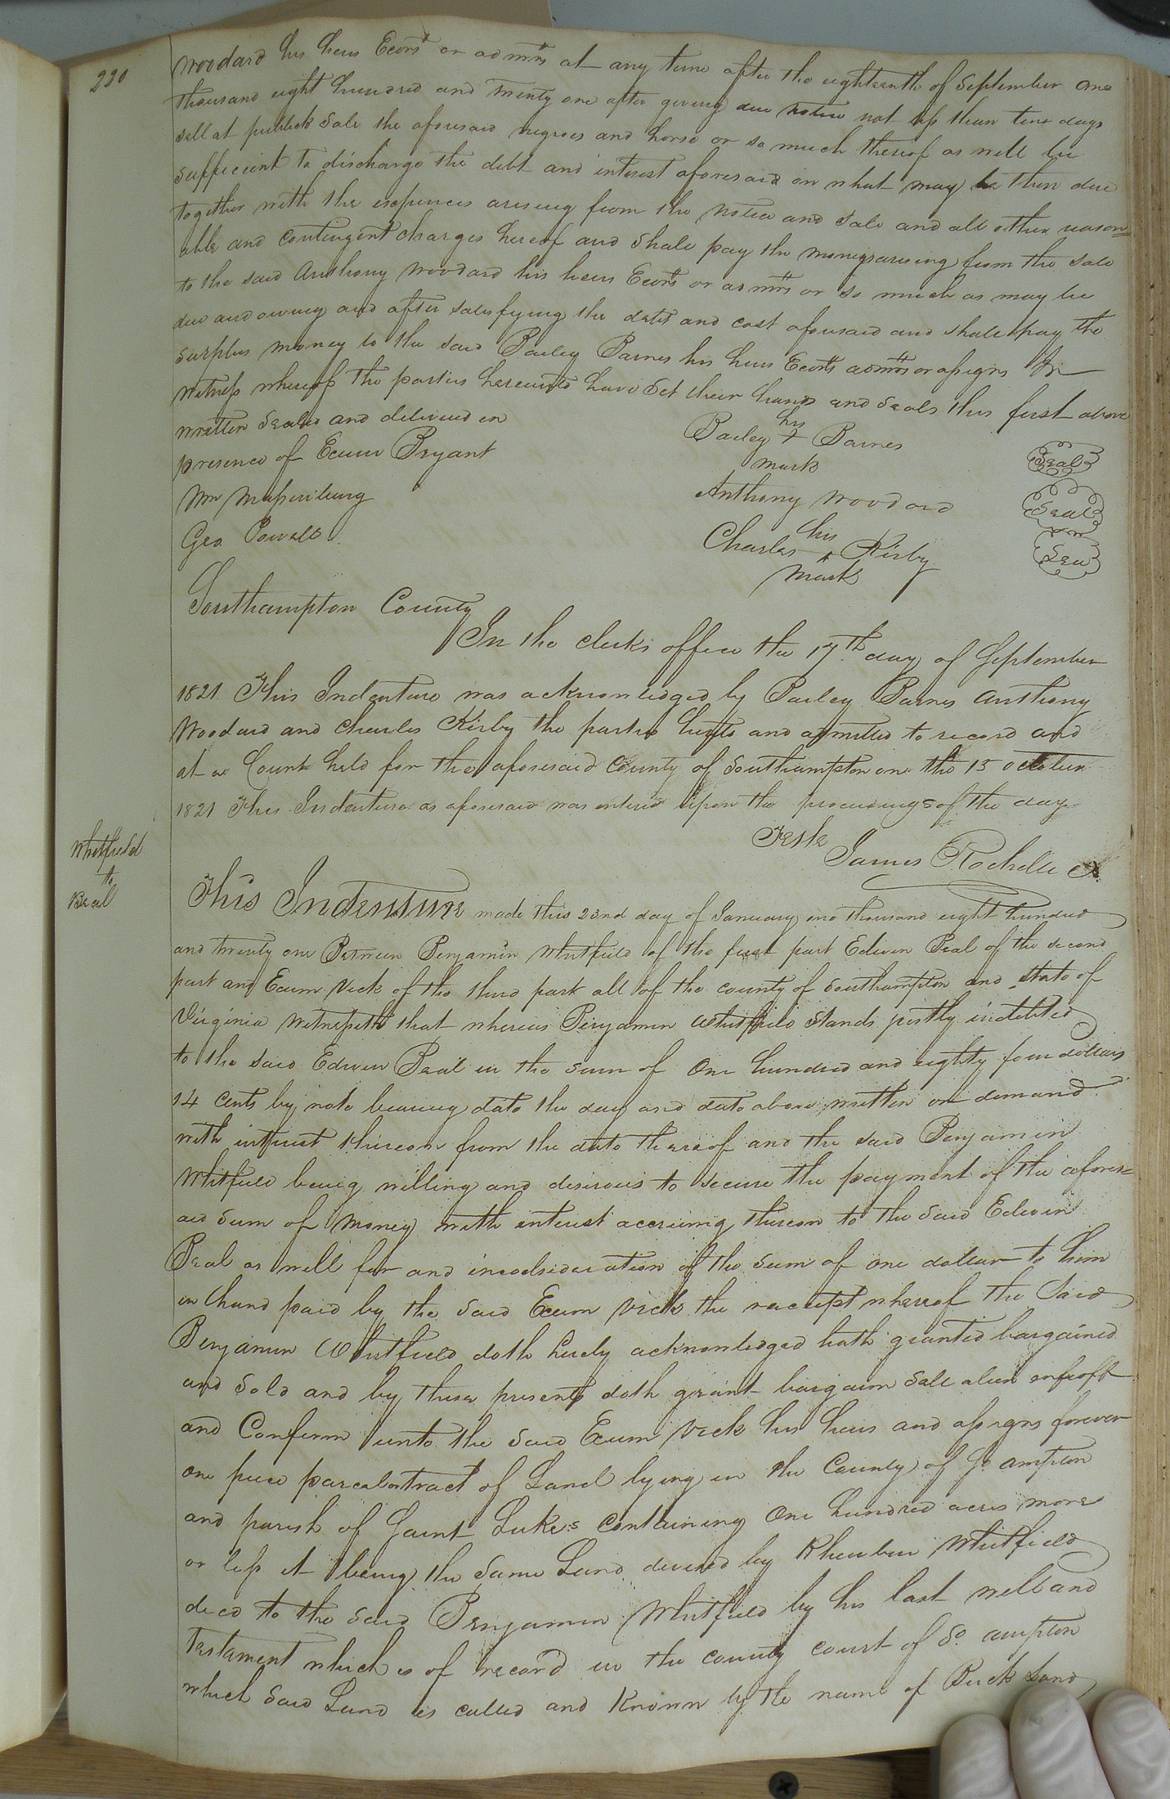 230
Woodard his heirs Ecors or admrs at any time after the eighteenth of September one
thousand eight hundred and twenty one after giving due notice not less than ten days
sell at publick sale the aforesaid negroes and horse or so much thereof as will be
sufficient to discharge the debt and interest aforesaid or what may be then due
together with the expences arising from the notice and sale and all other reason=
able and contingent charges hereof and shall pay the mony arising from the sale
to the said Anthony Woodard his heirs Ecors or admrs or so much as may be
due and owing and after satisfying the debt and cost aforesaid and shall pay the
surplus money to the said Bailey Barnes his heirs Ecors admrs or assigns In
witness whereof the parties hereunto have set their hands and seals this first above
written Sealed and delivered in
presence of Exum Bryant
Wm Massenburg
Geo Powell
his
Bailey + Barnes Seal
mark
Anthony Woodard Seal
his
Charles + Kirby Seal
mark
Southampton County
In the clerks office the 17th day of September
1821 This Indenture was acknowledged by Bailey Barnes Anthony
Woodard and Charles Kirby the parties hereto and admitted to record and
at a Court held for the aforesaid County of Southampton on the 15 october
1821 This Indenture as aforesaid was entered upon the proceedings of the day
Teste
James Rochelle Ck
Whitfield
to
Beal
This Indenture made this 22nd day of January one thousand eight hundred
and twenty one Between Benjamin Whitfield of the first part Edwin Beal of the second
part and Exum Vick of the third part all of the county of Southampton and state of
Virginia Witnesseth that whereas Benjamin Whitfield stands justly indebted
to the said Edwin Beal in the sum of One hundred and eighty four dollars
14 cents by note bearing date the day and date above written on demand
with interest thereon from the date thereof and the said Benjamin
Whitfield being willing and desirous to secure the payment of the afores=
aid sum of Money with interest accruing thereon to the said Edwin
Beal as well for and inconsideration of the sum of one dollar to him
in hand paid by the said Exum Vick the receipt whereof the Said
Benjamin Whitfield doth hereby acknowledged hath granted bargained
and Sold and by these presents doth grant bargain Sell alien enfeoff
and Confirm unto the Said Exum Vick his heirs and assigns forever
one piece parcel or tract of Land lying in the County of So ampton
and parish of Saint Luke's Containing One hundred acres more
or less it being the Same Land devised by Rheuben Whitfield
decd to the Said Benjamin Whitfield by his last will and
Testament which is of record in the county court of So ampton
which Said Land is called and Known by the name of Buck Land